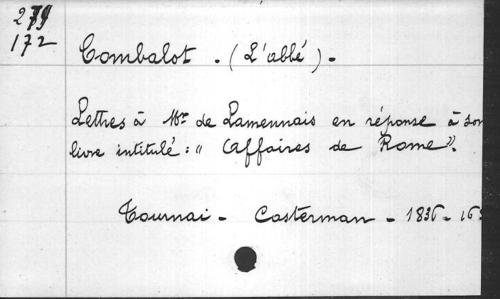 279
172
Combalot. (L'abbé).
Lettres à Mr. de Lamennais en réponse à son
livre intitulé: "Affaires de Rome".
Tournai - Casterman - 1836 - 16